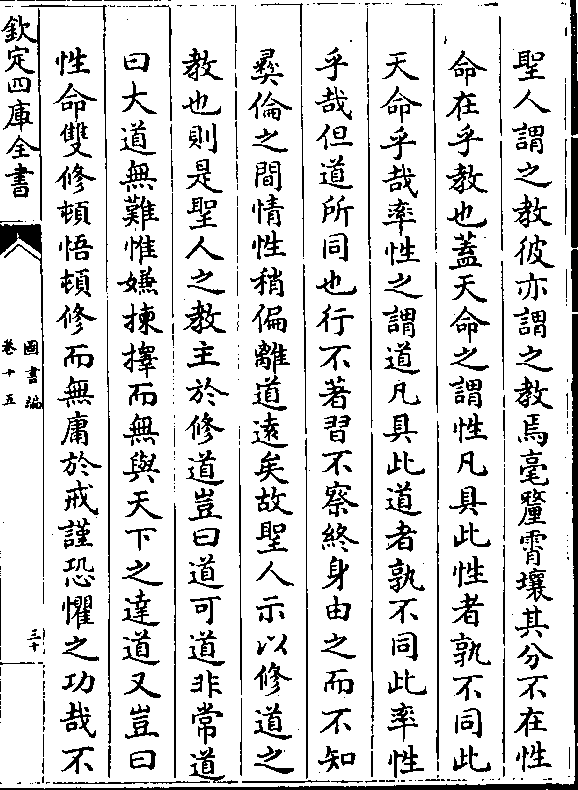 聖人謂之教彼亦謂之教焉毫釐霄壤其分不在性
命在乎教也蓋天命之謂性凡具此性者孰不同此
天命乎哉率性之謂道凡具此道者孰不同此率性
乎哉但道所同也行不著習不察終身由之而不知
彞倫之間情性稍偏離道遠矣故聖人示以修道之
教也則是聖人之教主於修道豈曰道可道非常道
曰大道無難惟嫌揀擇而無與天下之達道又豈曰
性命雙修頓悟頓修而無庸於戒謹恐懼之功哉不
欽定四庫全書
圖書編
卷十五
三十